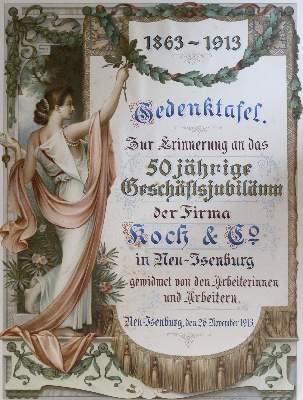 1863-1913
Gedenktafel.
Zur Erinnerung an das
50 jährige
Geschäftsjubiläum
der Firma
Koch & Co
in Neu-Isenburg
gewidmet von den Arbeiterinnen
und Arbeitern.
Neu-Isenburg, den 26. November 1913.